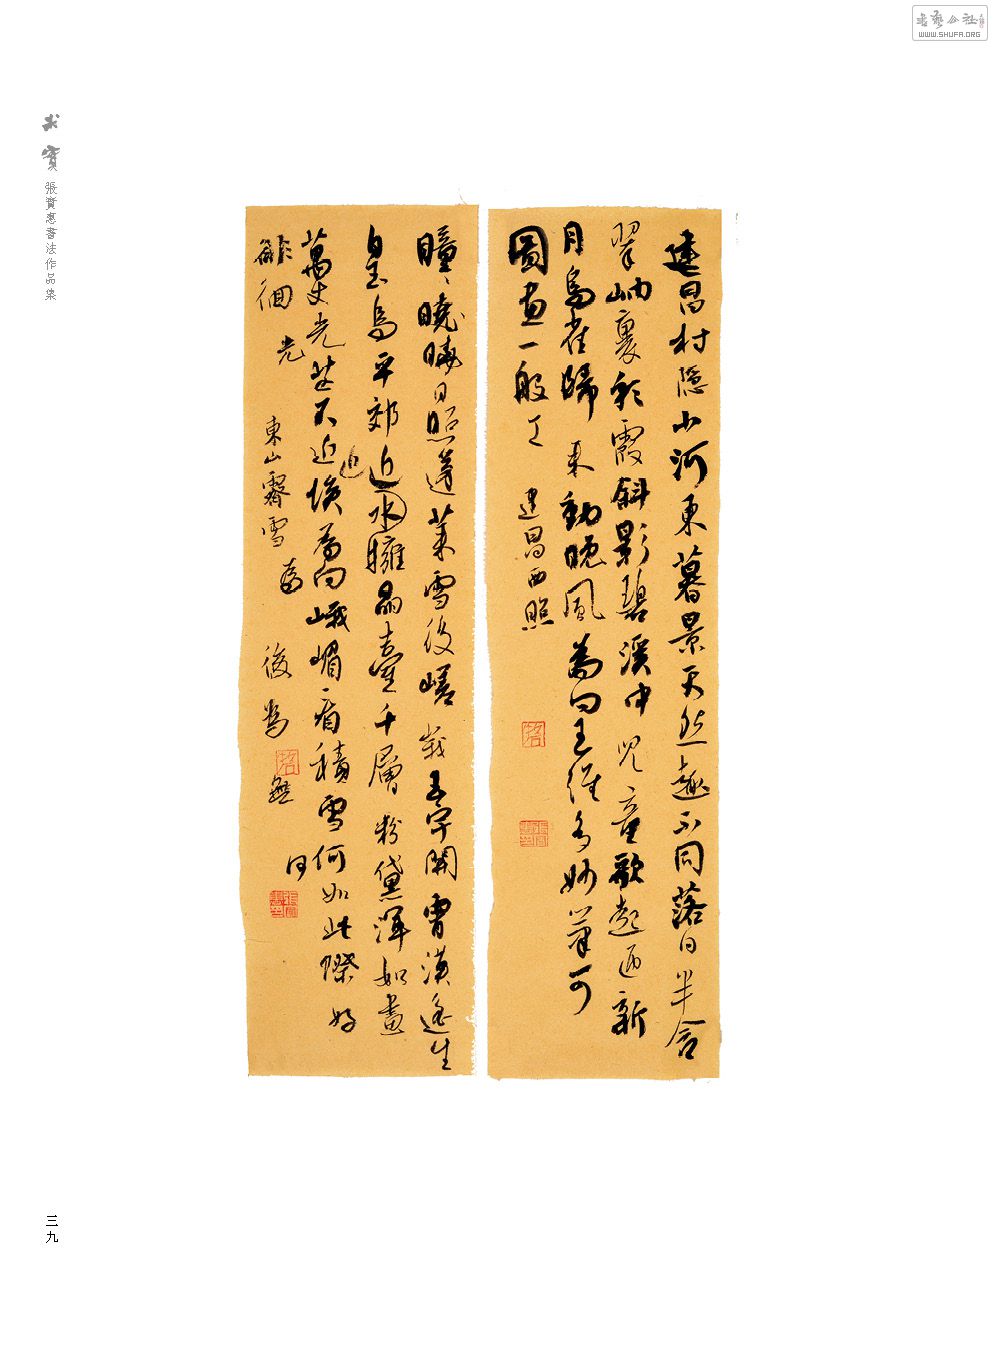 書藝公社
WWW.SHUFA.ORG
求實
張實惠書法作品集
建昌村隱小河東暮景天然趣不同落日半含
翠岫裏彩霞斜影碧溪中兒童歌起迎新
月鳥雀歸來動晚風為問王維多妙筆可
圖畫一般工
建昌西照
曈曈曉日照蓬萊雪後嵯峩玉宇開霄漢遙生
皇鳥平郊近水擁晶臺千層粉黛渾如畫
萬丈光芒不近埃為問峨嵋看積雪何如此際好
徘徊
光
東山霽雪
後為
三九